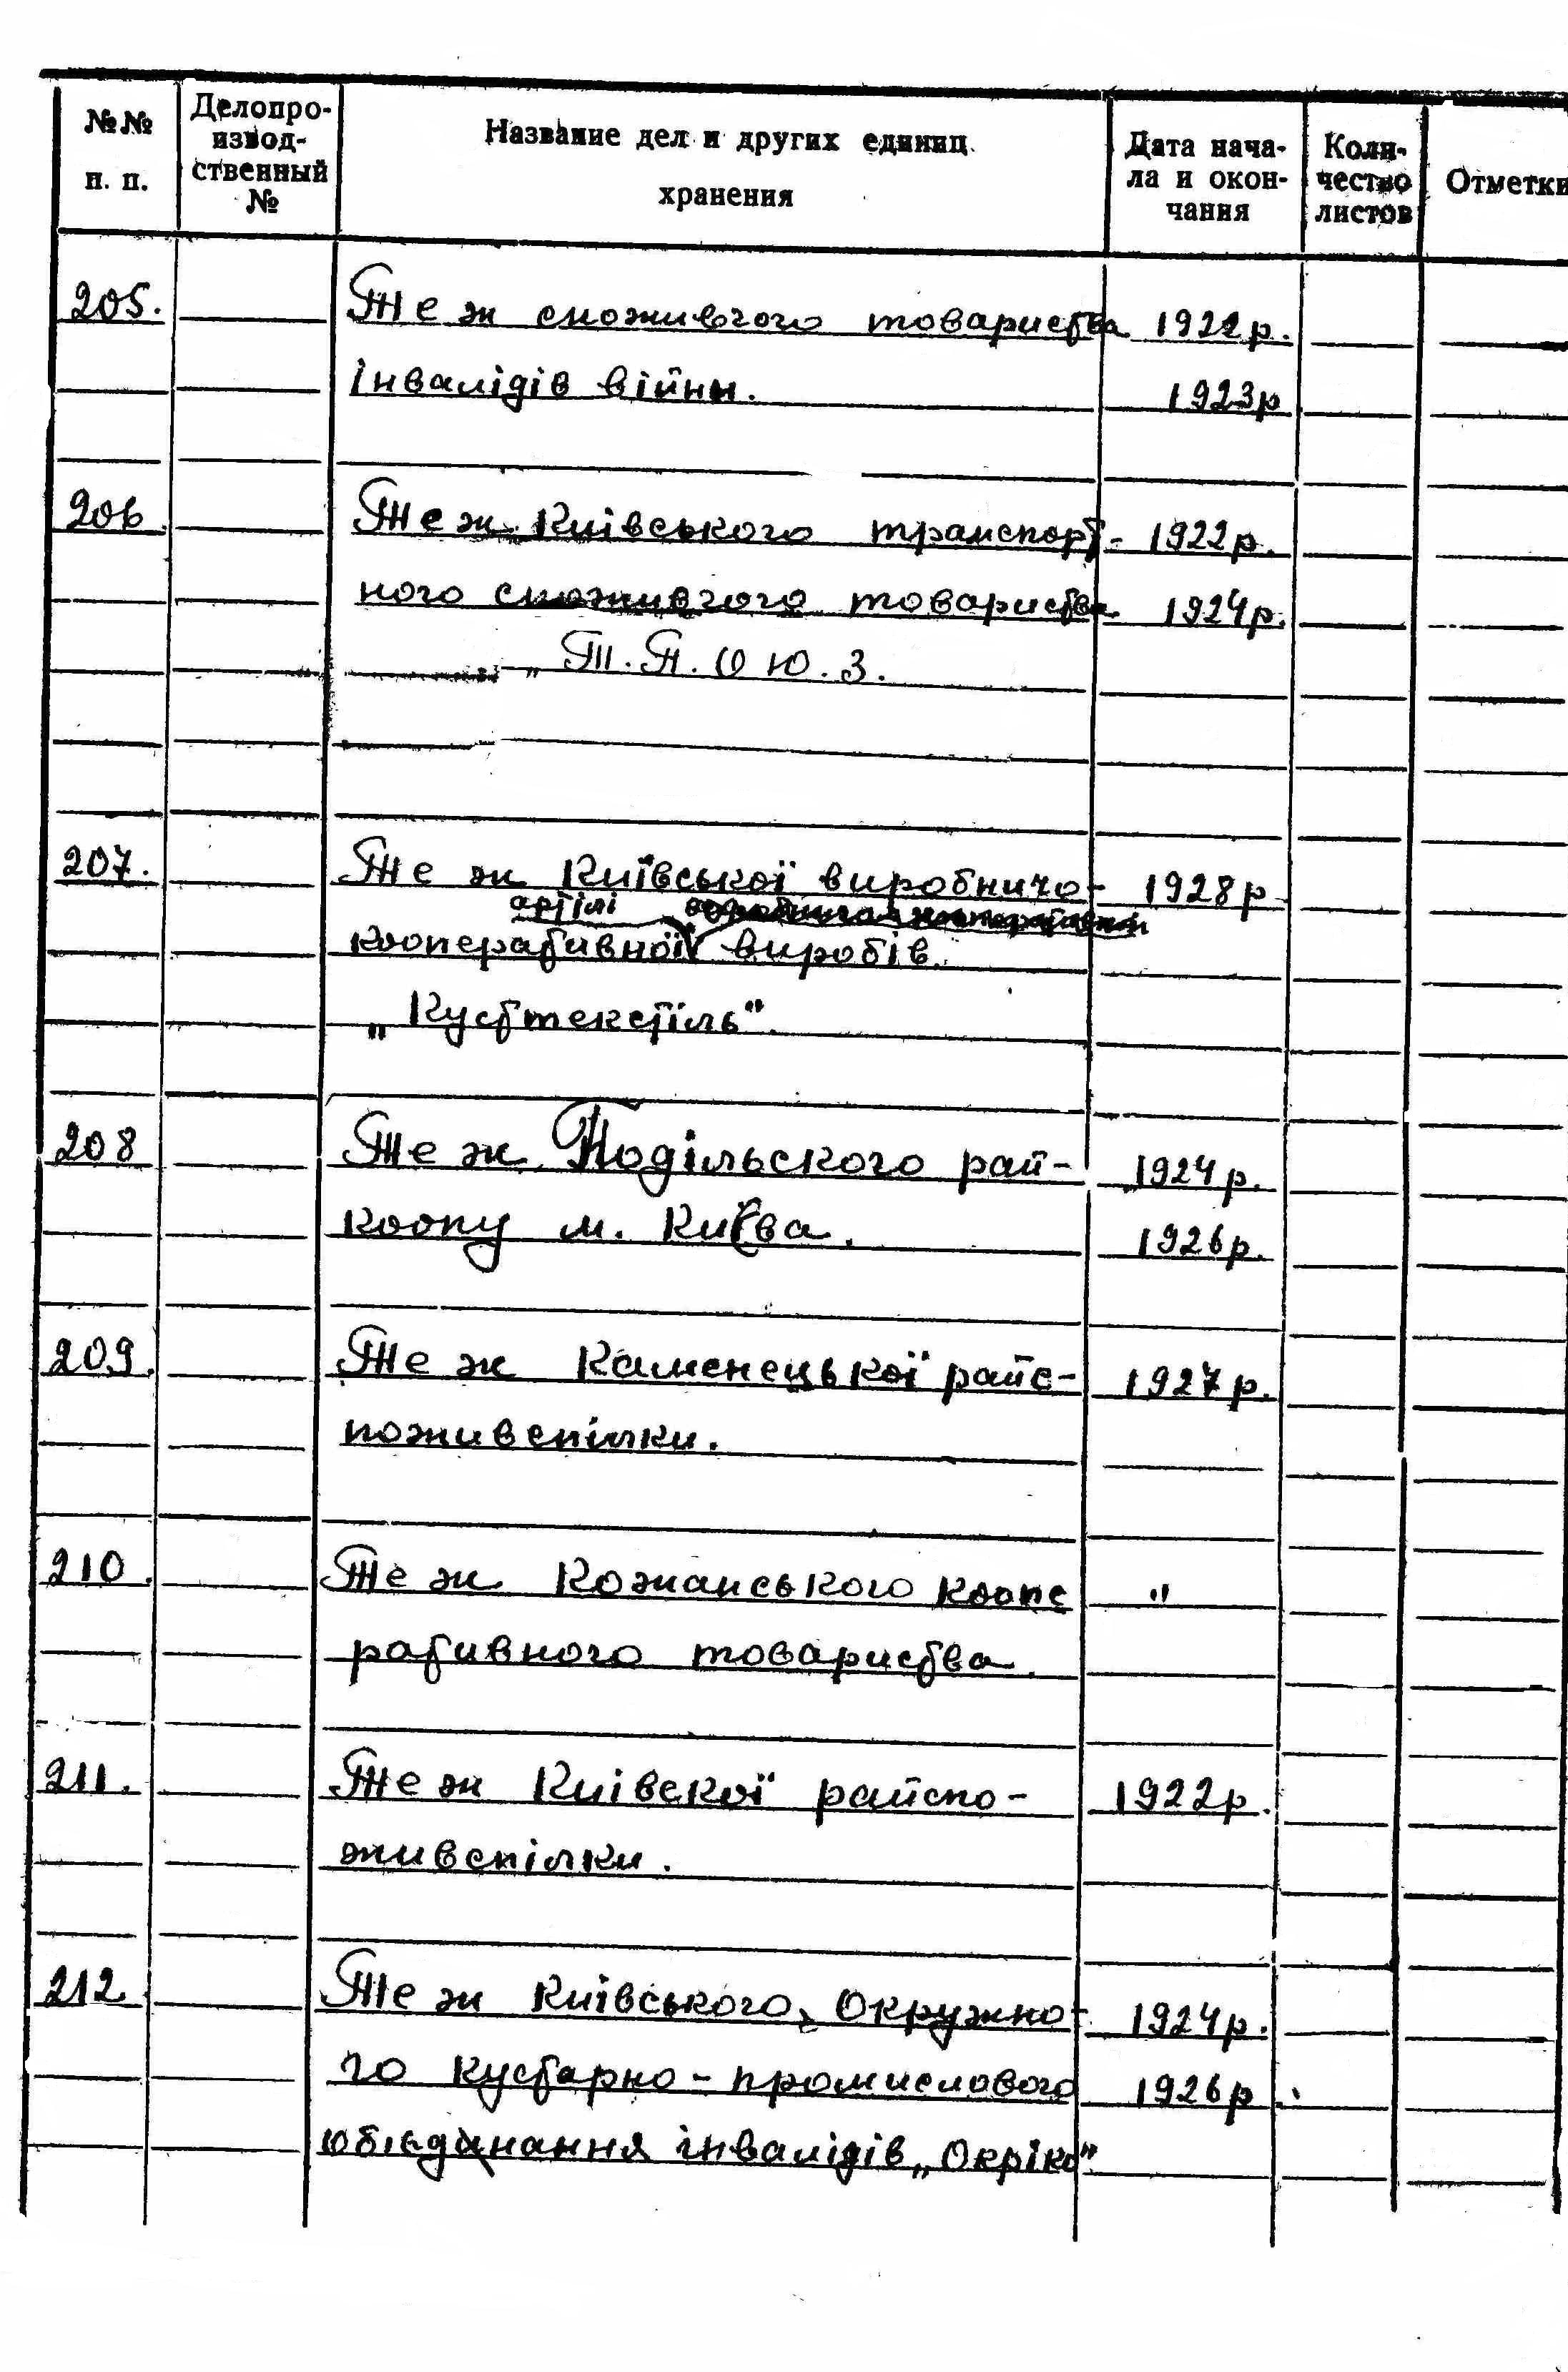 №№ п. п.
Делопро-
извод-
ственный
№
Название дел и других единиц
хранения
Дата нача-
ла и окон-
чания
Коли-
чество
листов
Отметки
205. Те ж споживчого товариства 1922р.
інвалідів війни. 1923р
206 Те ж Київського транспорт- 1922р.
ного споживчого товариства 1924р.
„Т.П.О Ю.З.
207. Те ж Київської виробничо- 1928р
артілі
кооперативної виробів.
„Кустекстіль".
208 Те ж Подільского рай- 1924р.
коопу м. Києва. 1926р.
209. Те ж Каменецької райс- 1927р.
поживспілки.
210. Те ж Кожанського коопе "
ративного товариства.
211. Те ж Київскої райспо- 1922р.
живспілки.
212 Те ж Київського Окружно- 1924р.
го кустарно-промислового 1926р.
обієднання інвалідів „Окріко"